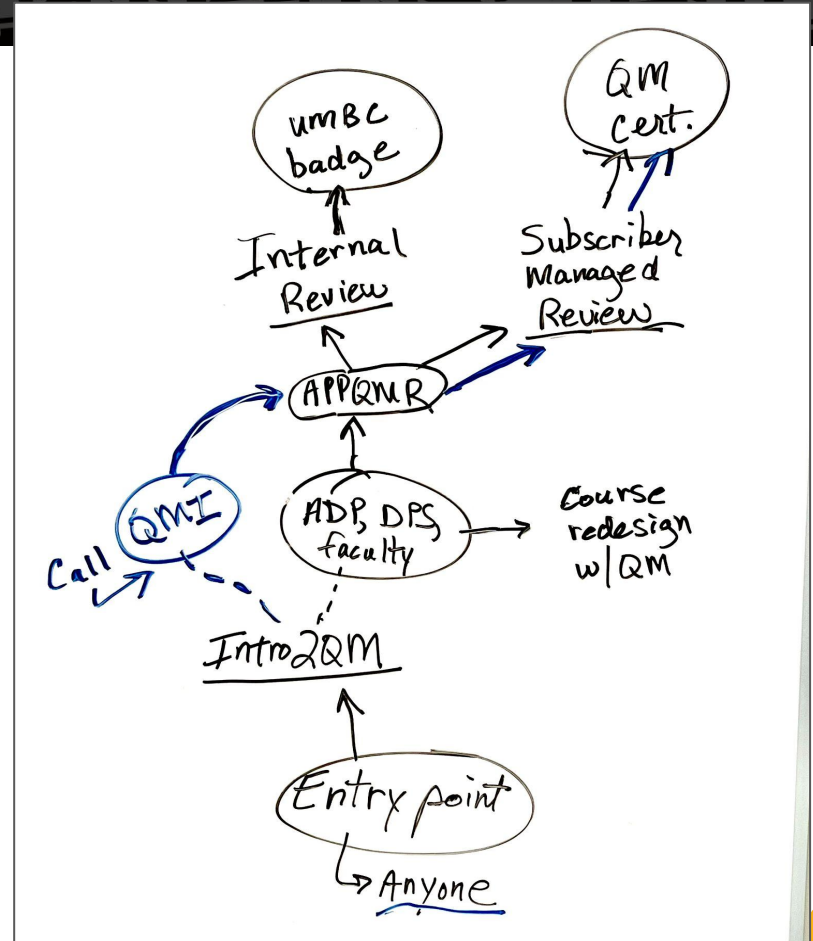 umBC
badge
QM
cert.
Internal
Review
Subscriber
Managed
Review
APPQMR
QMI
ADP, DPS,
faculty
Course
redesign
w/QM
Call
Intro2QM
Entry point
Anyone